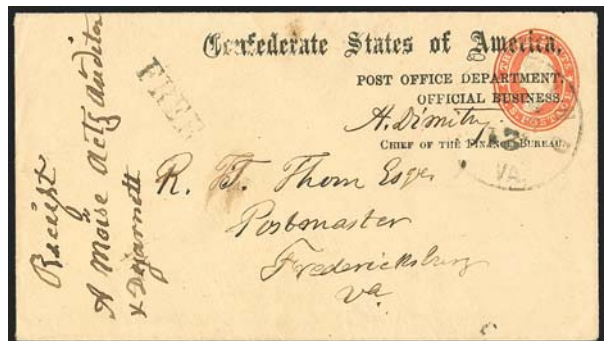 Confederate States of America,
POST OFFICE DEPARTMENT,
OFFICIAL BUSINESS.
A. Dimitry
CHIEF OF THE FINANCE BUREAU.
FREE
THREE CENTS
U.S. POSTAGE
VA.
R. T. Thom Esqr
Postmaster
Fredericksburg
Va
Receipt
A Moise Actg Auditor
& Dejarnett